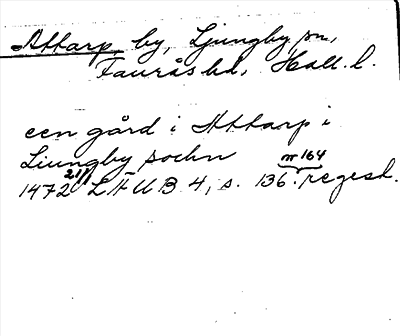 Attarp, by, Ljungby sn,
Faurås hd, Hall. l.
een gård i Attarp i
Liungby sochn
nr 164
1472 21/1 LFUB 4, s. 136. regest.